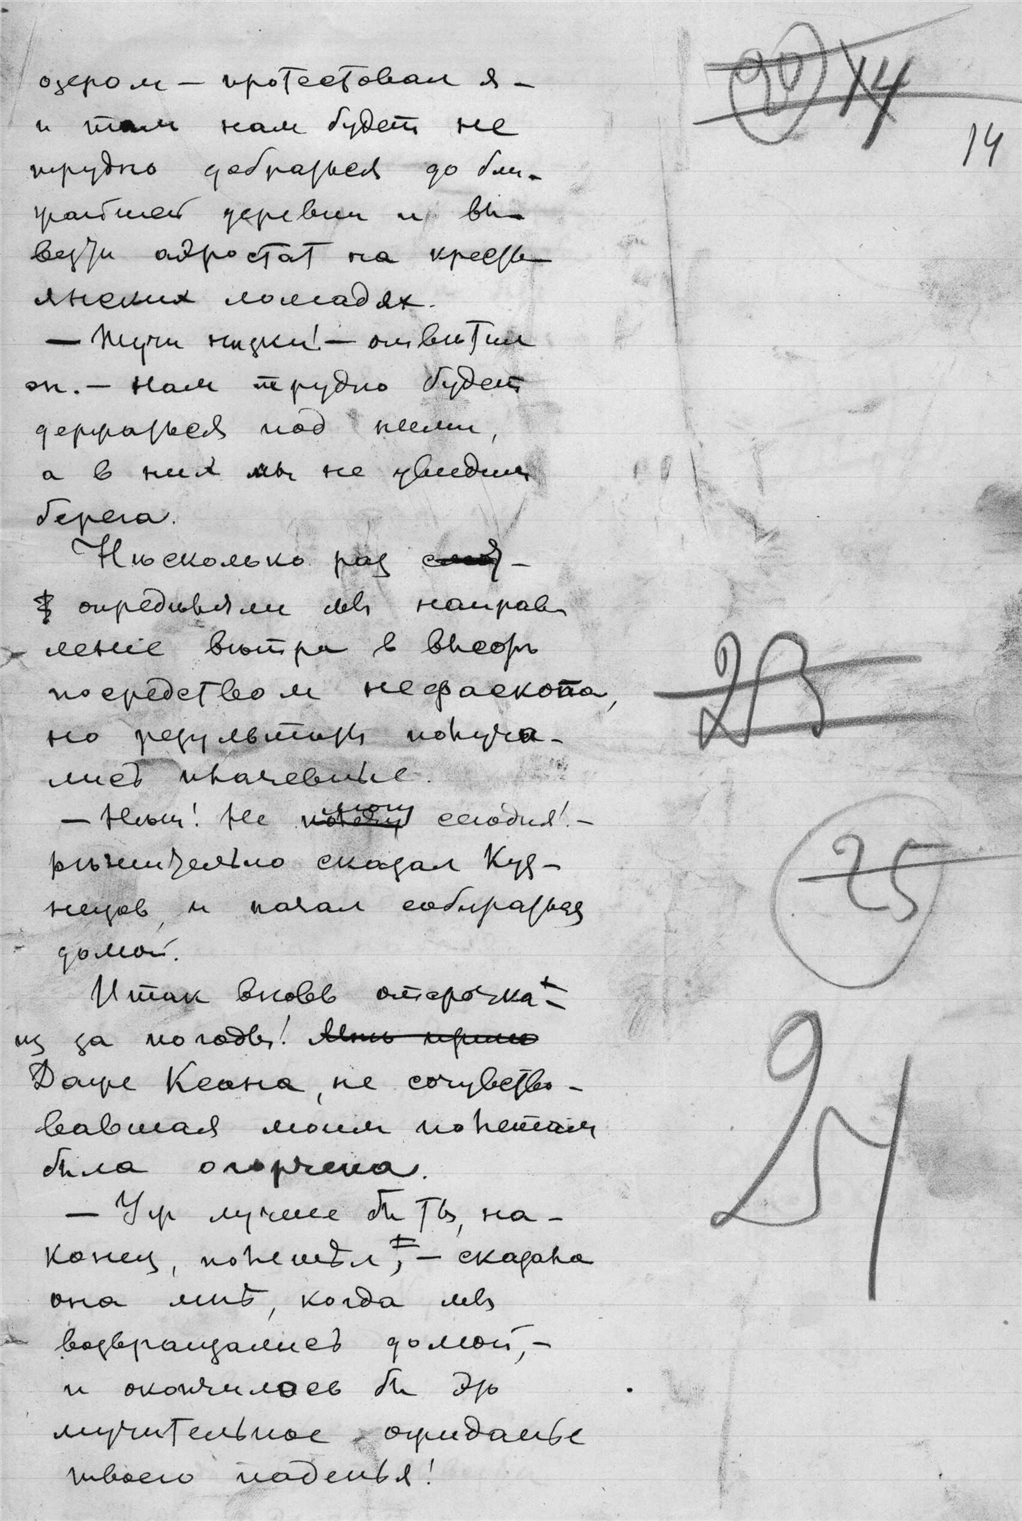 20 14
14
озером — протестовал я —
и там нам будет не
трудно добраться до бли-
жайшей деревни и вы-
везти аэростат на кресть-
янских лошадях.
— Тучи низки! — ответил
он. — Нам трудно будет
держаться под ними,
а в них мы не увидим
берега.
Нѣсколько раз
опредѣляли мы направ-
ление вѣтра в высотѣ
посредством нефоскопа,
23
но результаты получа-
лись плачевные.
— Нѣт! Не могу сегодня! —
рѣшительно сказал Куз-
25
нецов, и начал собираться
домой.
Итак вновь отсрочка
из за погоды!
Даже Ксана, не сочувство-
вавшая моим полетам
была огорчена.
24
— Уж лучше бы ты, на-
конец, полетѣл, — сказала
она мнѣ, когда мы
возвращались домой, —
и окончилось бы это
мучительное ожиданье
твоего паденья!